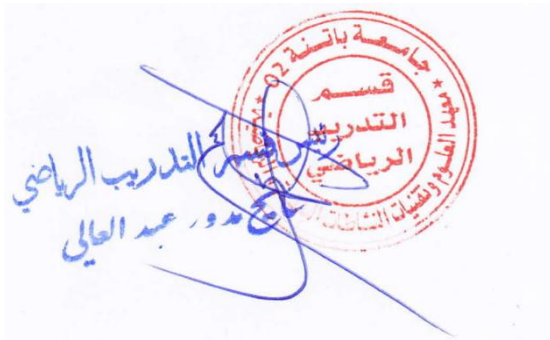 جامعة باتنة 02
معهد العلوم وتقنيات النشاطات
قسم
التدريب
الرياضي
رئيس قسم التدريب الرياضي
مدور عبد العالي